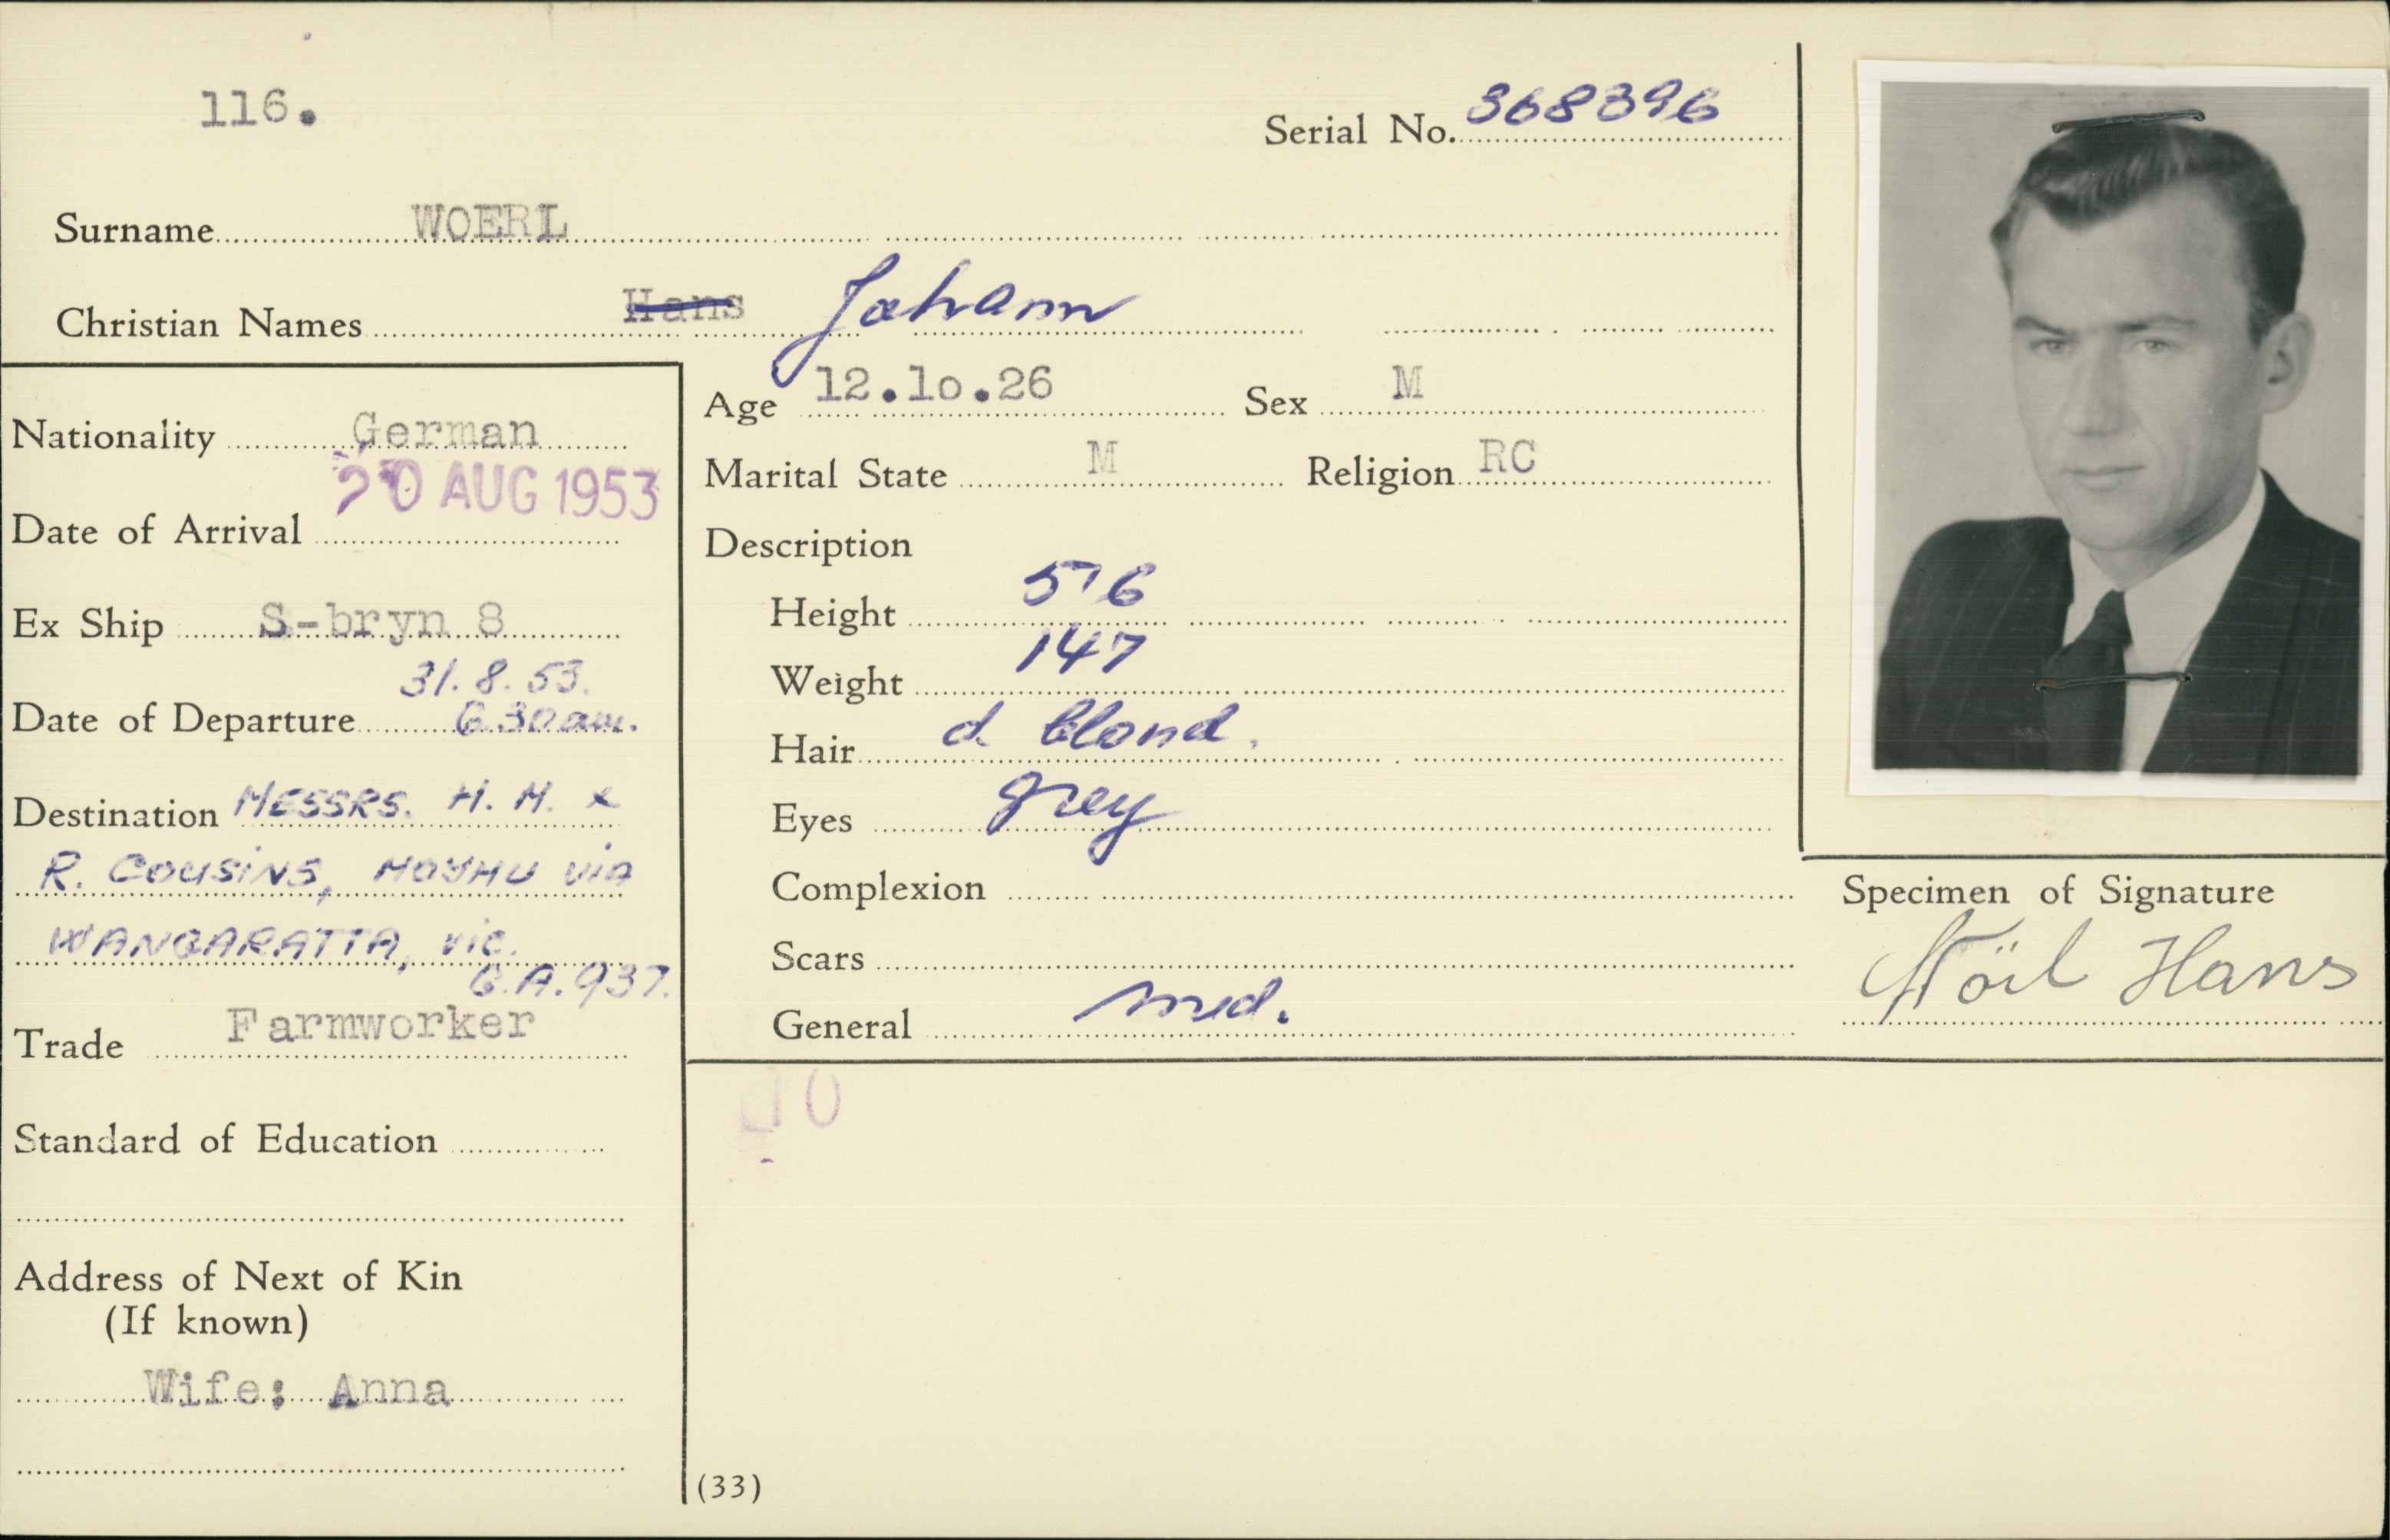 116.
Serial No. 368396
Surname WOERL
Christian Names Hans Johann
Nationality German
Date of Arrival 20 AUG 1953
Ex Ship S-bryn 8
Date of Departure 31.8.53.
6.30am.
Destination MESSRS. H. M. &
R. COUSINS, MOYHU via
WANGARATTA, vic.
C.A.937.
Trade Farmworker
Standard of Education
Address of Next of Kin
(If known)
Wife: Anna
Age 12.10.26 Sex M
Marital State M Religion RC
Description
Height 5'6
Weight 147
Hair d. blond.
Eyes grey
Complexion
Scars
General med.
Specimen of Signature
Wörl Hans
(33)